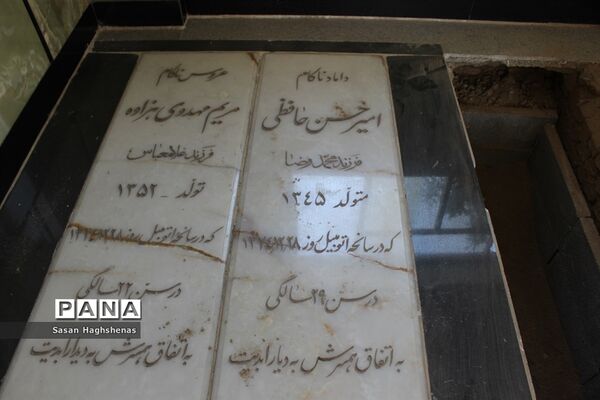 داماد ناکام
امیرحسن حافظی
فرزند محمدرضا
متولد ۱۳۴۵
که در سانحه اتومبیل روز ۱۳۷۴/۱۲/۲۸
در سن ۲۹ سالگی
به اتفاق همسرش به دیار ابدیت
عروس ناکام
مریم مهدوی بهزاده
فرزند غلامعباس
تولد - ۱۳۵۲
که در سانحه اتومبیل روز ۱۳۷۴/۱۲/۲۸
در سن ۲۲ سالگی
به اتفاق همسرش به دیدار ابدیت
PANA
Sasan Haghshenas